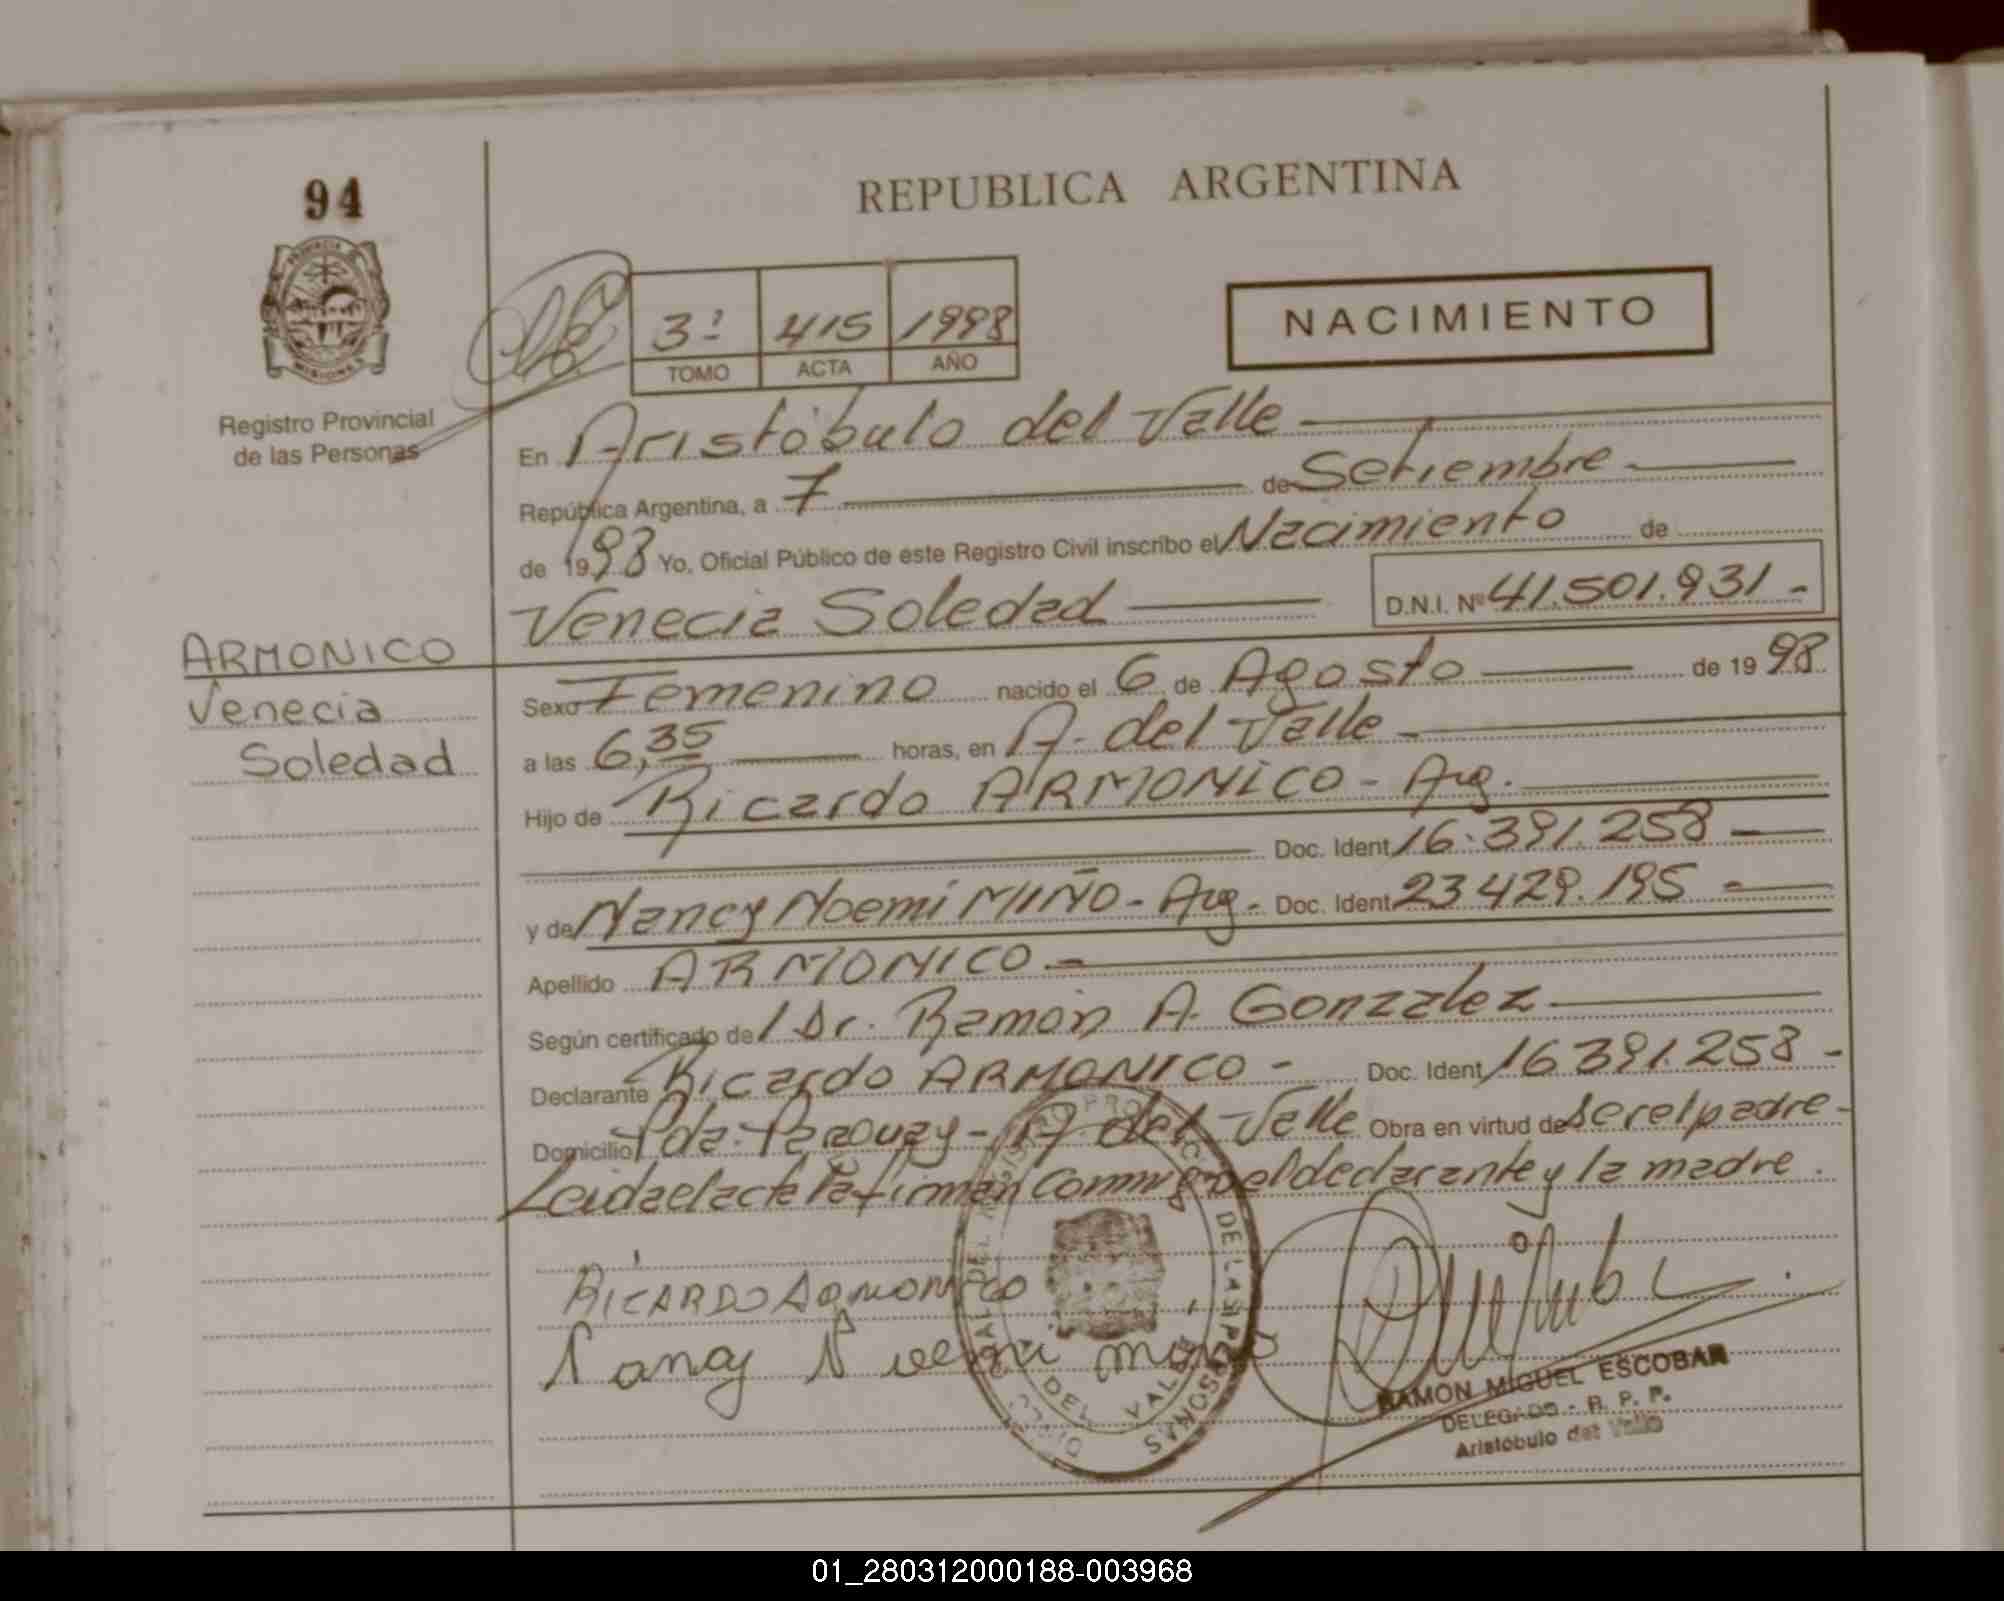 94
REPUBLICA ARGENTINA
PROVINCIA DE
MISIONES
Registro Provincial
de las Personas
3º 415 1998
TOMO ACTA AÑO
NACIMIENTO
En Aristóbulo del Valle
República Argentina, a 7 de Setiembre
de 1998 Yo, Oficial Público de este Registro Civil inscribo el Nacimiento de
Venecia Soledad D.N.I. Nº 41.501.931-
ARMONICO
Venecia
Soledad
Sexo Femenino nacido el 6 de Agosto de 1998
a las 6,35 horas, en A. del Valle
Hijo de Ricardo ARMONICO - Arg.
Doc. Ident 16.391.258
y de Nancy Noemi MIÑO - Arg. Doc. Ident 23 429.195
Apellido ARMONICO
Según certificado de / Dr. Ramón A. Gonzalez
Declarante Ricardo ARMONICO - Doc. Ident 16 391.258 -
Domicilio Pda. Parouay - A. del Valle Obra en virtud de ser el padre -
Leida el acta la firman conmigo el declarante y la madre.
RICARDO ARMONICO
Nancy Noemi Miño
DE LAS PERSONAS
DEL VALLE
RAMON MIGUEL ESCOBAR
DELEGADO - R. P. P.
Aristóbulo del Valle
01_280312000188-003968